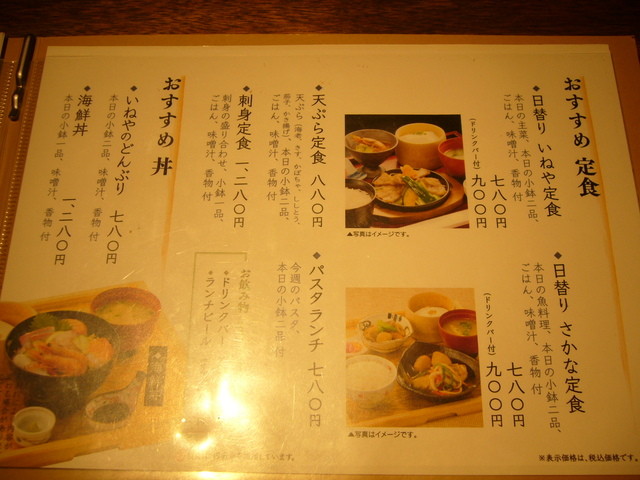 おすすめ 定食
◆日替り いねや定食
本日の主菜、本日の小鉢二品、
ごはん、味噌汁、香物 付
七八〇円
(ドリンクバー付) 九〇〇円
▲写真はイメージです。
◆日替り さかな定食
本日の魚料理、本日の小鉢二品、
ごはん、味噌汁、香物 付
七八〇円
(ドリンクバー付) 九〇〇円
▲写真はイメージです。
◆天ぷら定食 八八〇円
天ぷら(海老、きす、かぼちゃ、ししとう、
茄子、かき揚げ)、本日の小鉢二品、
ごはん、味噌汁、香物 付
◆刺身定食 一、二八〇円
刺身の盛り合わせ、小鉢一品、
ごはん、味噌汁、香物 付
◆パスタランチ 七八〇円
今週のパスタ、
本日の小鉢二品付
お飲み物
◆ドリンクバー
◆ランチビール
おすすめ 丼
◆いねやのどんぶり 七八〇円
本日の小鉢二品、味噌汁、香物 付
◆海鮮丼 一、二八〇円
本日の小鉢一品、味噌汁、香物 付
※表示価格は、税込価格です。